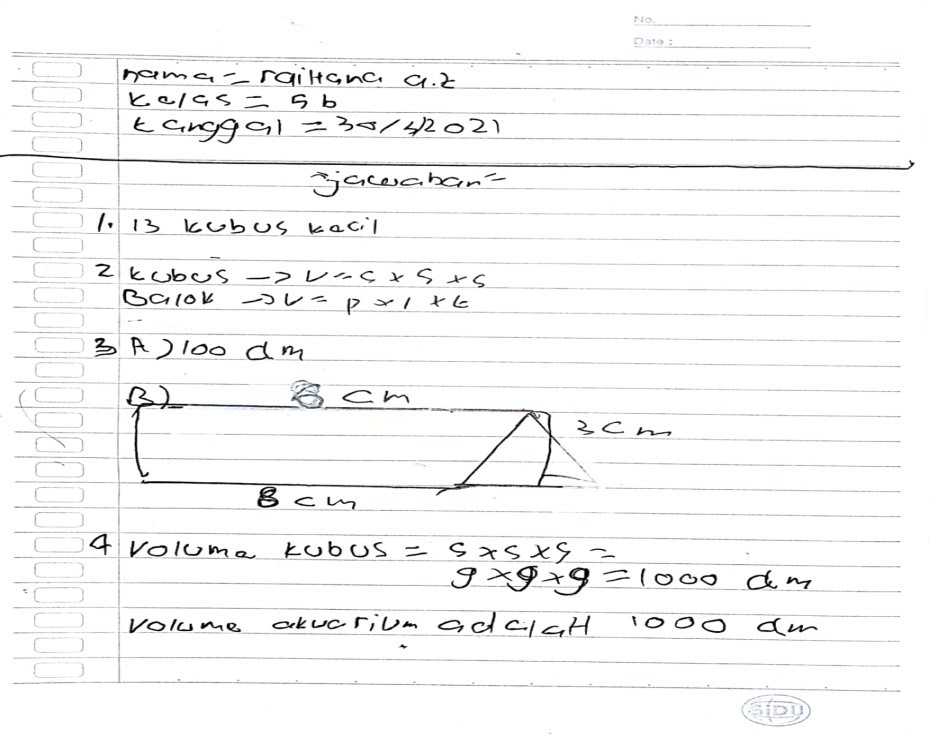 No.
Date :
nama = raiHana a.z
kelas = 5 b
tanggal = 30/4/2021
=jawaban=
1. 13 kubus kecil
2 kubus -> V = s x s x s
Balok -> V = p x l x t
3 A) 100 dm
B) 8 cm
3 cm
8 cm
4 Volume kubus = s x s x s =
9 x 9 x 9 = 1000 dm
Volume akuarium adalaH 1000 dm
SIDU